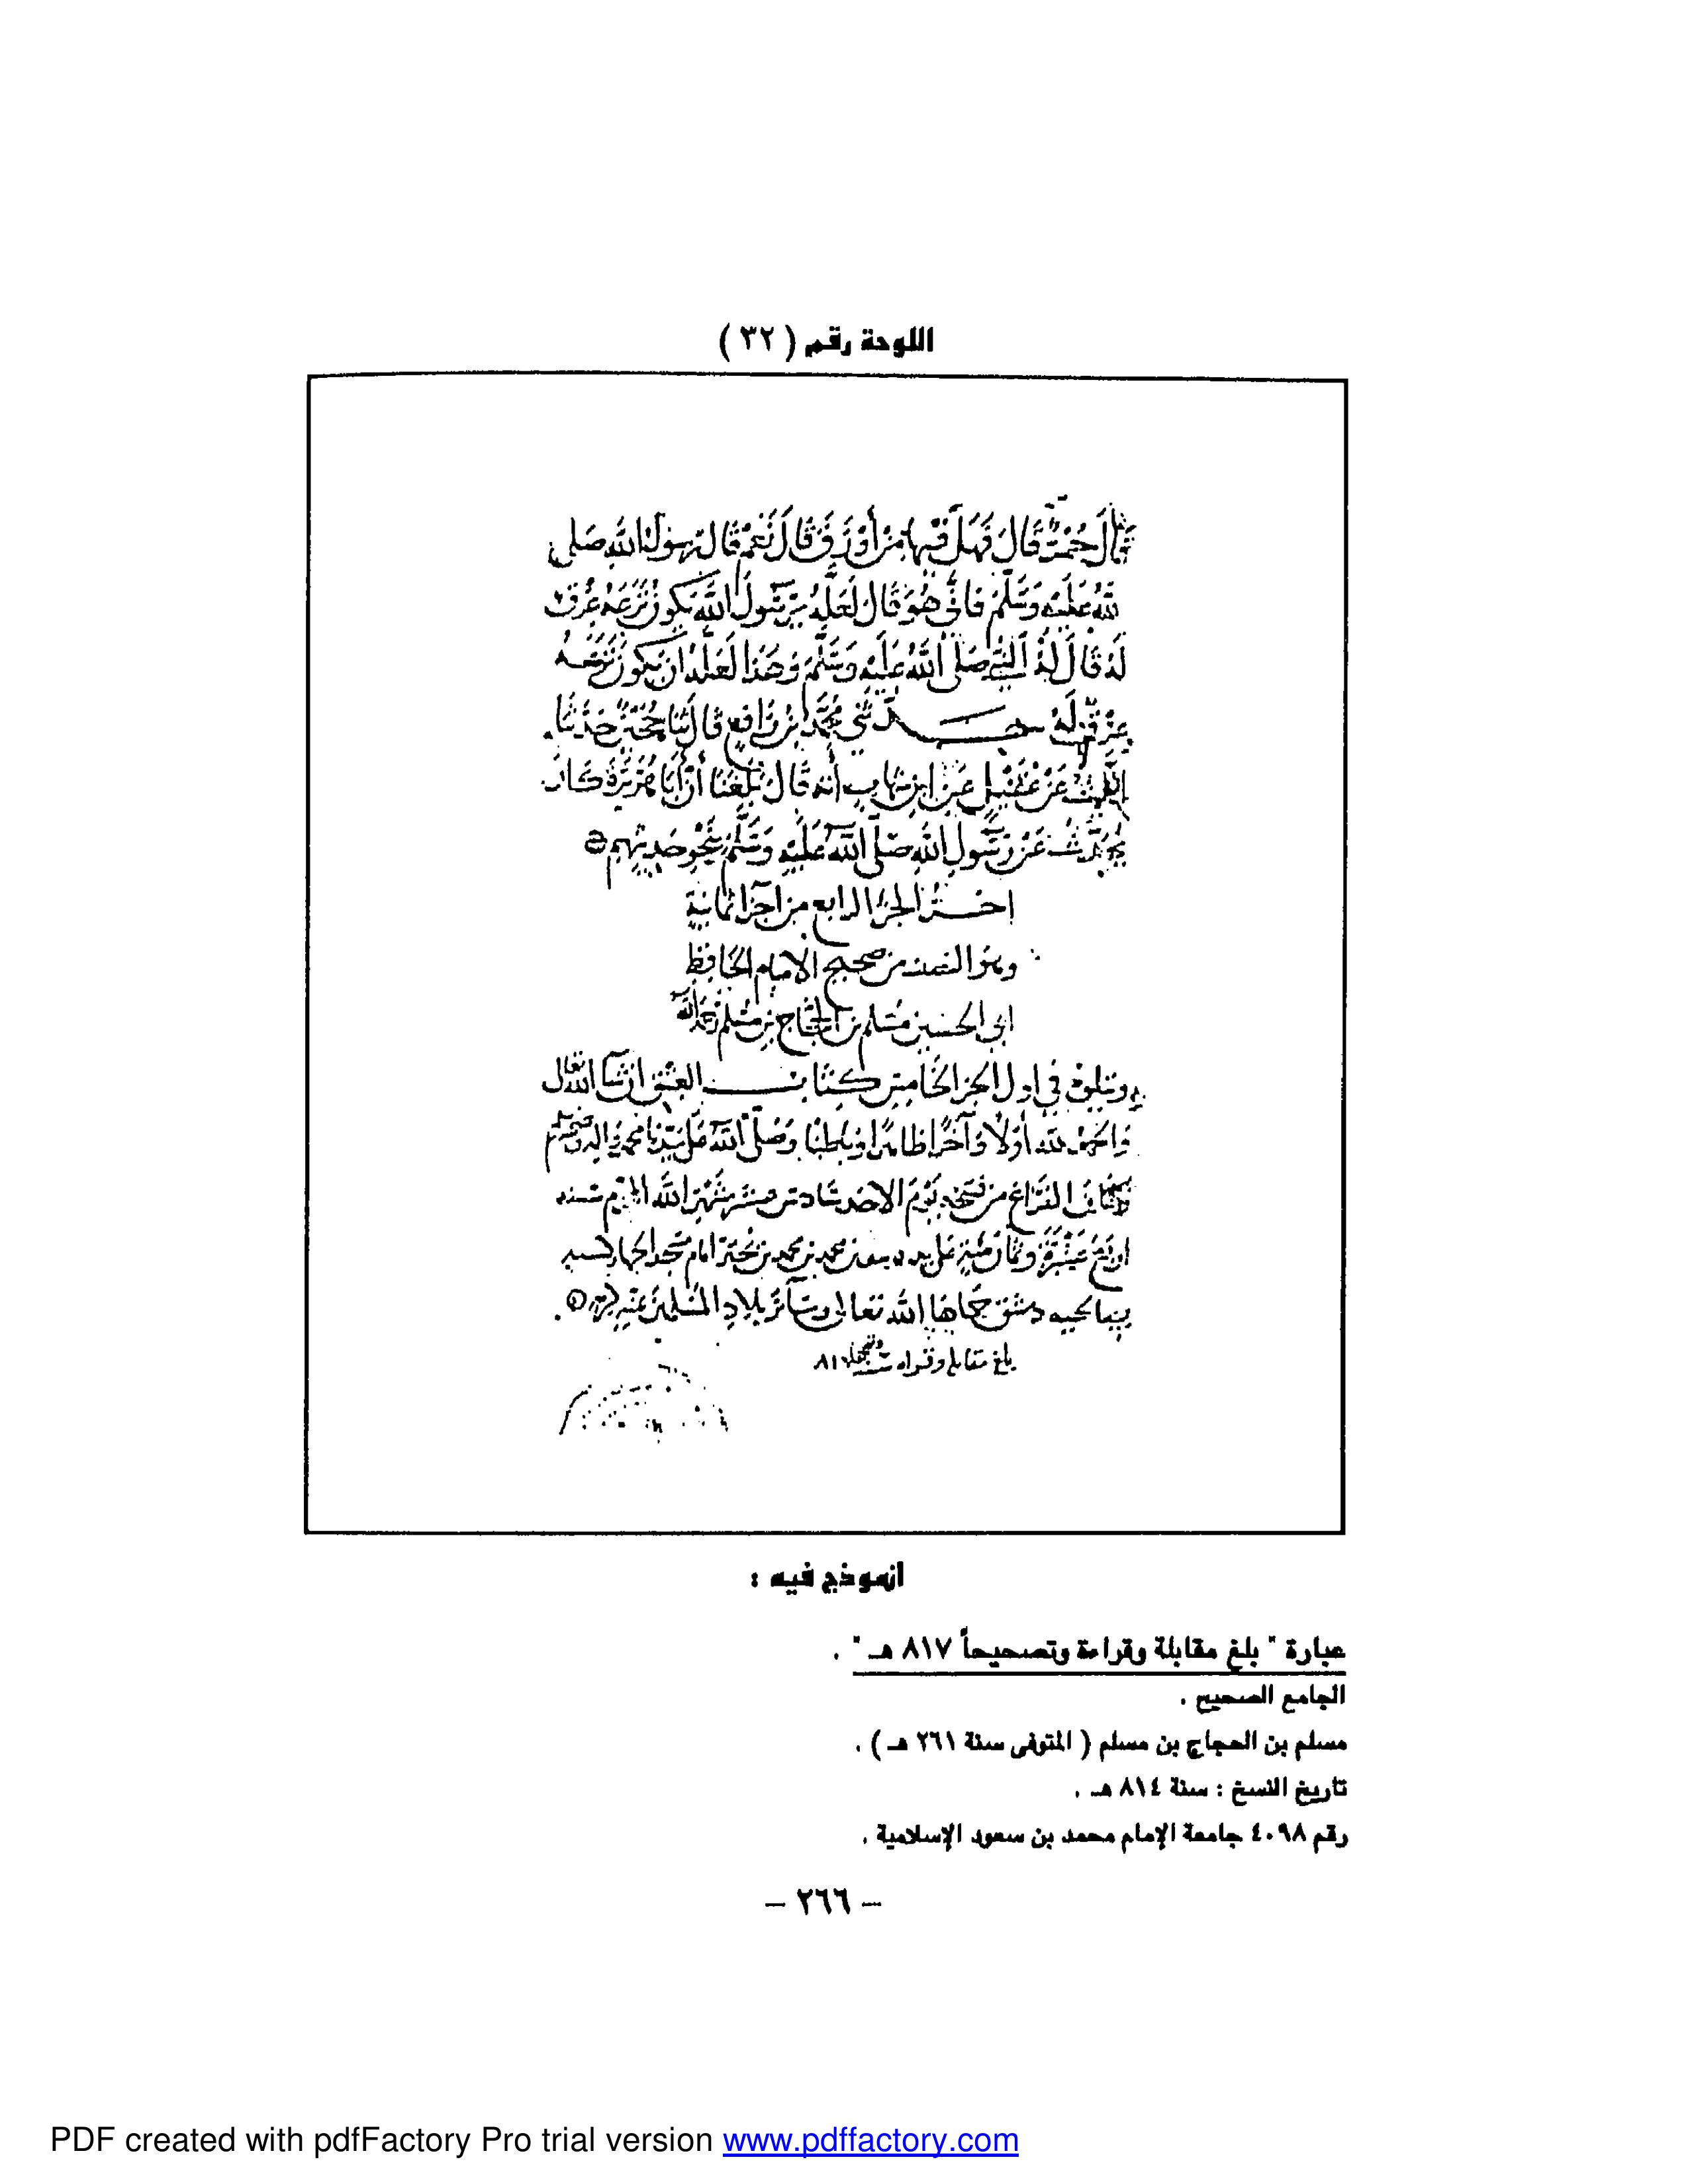 اللوحة رقم ( ٣٢ )
قَالَ حُمْرٌ قَالَ فَهَلْ فِيهَا مِنْ أَوْرَقَ قَالَ نَعَمْ قَالَ رسولُ الله صَلى
اللهُ عَلَيْهِ وَسَلَّمَ فَأَنَّى هُوَ قَالَ لَعَلَّهُ يَا رَسُولَ اللهِ يَكُونُ نَزَعَهُ عِرْقٌ
لَهُ قَالَ لَهُ النَّبِيُّ صَلَّى اللهُ عَلَيْهِ وَسَلَّمَ وَهَذَا لَعَلَّهُ ان يَكُونَ نَزَعَهُ
عِرْقٌ لَهُ حَدَّثَنِي مُحَمَّدُ بْنُ رَافِعٍ قَالَ ثَنَا حُجَيْنٌ حَدَّثَنَا
اللَّيْثُ عَنْ عُقَيْلٍ عَنِ ابْنِ شِهَابٍ أَنَّهُ قَالَ بَلَغَنَا أَنَّ أَبَا هُرَيْرَةَ كَانَ
يُحَدِّثُ عَنْ رَسُولِ اللهِ صَلَّى اللهُ عَلَيْهِ وَسَلَّمَ بِنَحْوِ حَدِيثِهِمْ
اخر الجزء الرابع من اجزا ثمانية
وهو النصف من صحيح الامام الحافظ
ابي الحسين مسلم بن الحجاج بن مسلم رحمه الله
ويتلوه في اول الجز الخامس كتاب العتق ان شا الله تعالى
والحمد لله أولا وآخرا ظاهرا وباطنا وصلى الله على سيدنا محمد واله وصحبه وسلم
الفراغ من نسخه يوم الاحد سادس عشر شهر الله المحرم سنه
اربع عشرة وثمان مئة على يد محمد بن محمد بن امام مسجد
دمشق حماها الله تعالى وسائر بلاد المسلمين
بلغ مقابلة وقراه وتصحيحا سنة ٨١٧
انموذج فيه :
عبارة " بلغ مقابلة وقراءة وتصحيحاً ٨١٧ هـ " .
الجامع الصحيح .
مسلم بن الحجاج بن مسلم ( المتوفى سنة ٢٦١ هـ ) .
تاريخ النسخ : سنة ٨١٤ هـ .
رقم ٤٠٩٨ جامعة الإمام محمد بن سعود الإسلامية .
– ٢٦٦ –
PDF created with pdfFactory Pro trial version www.pdffactory.com